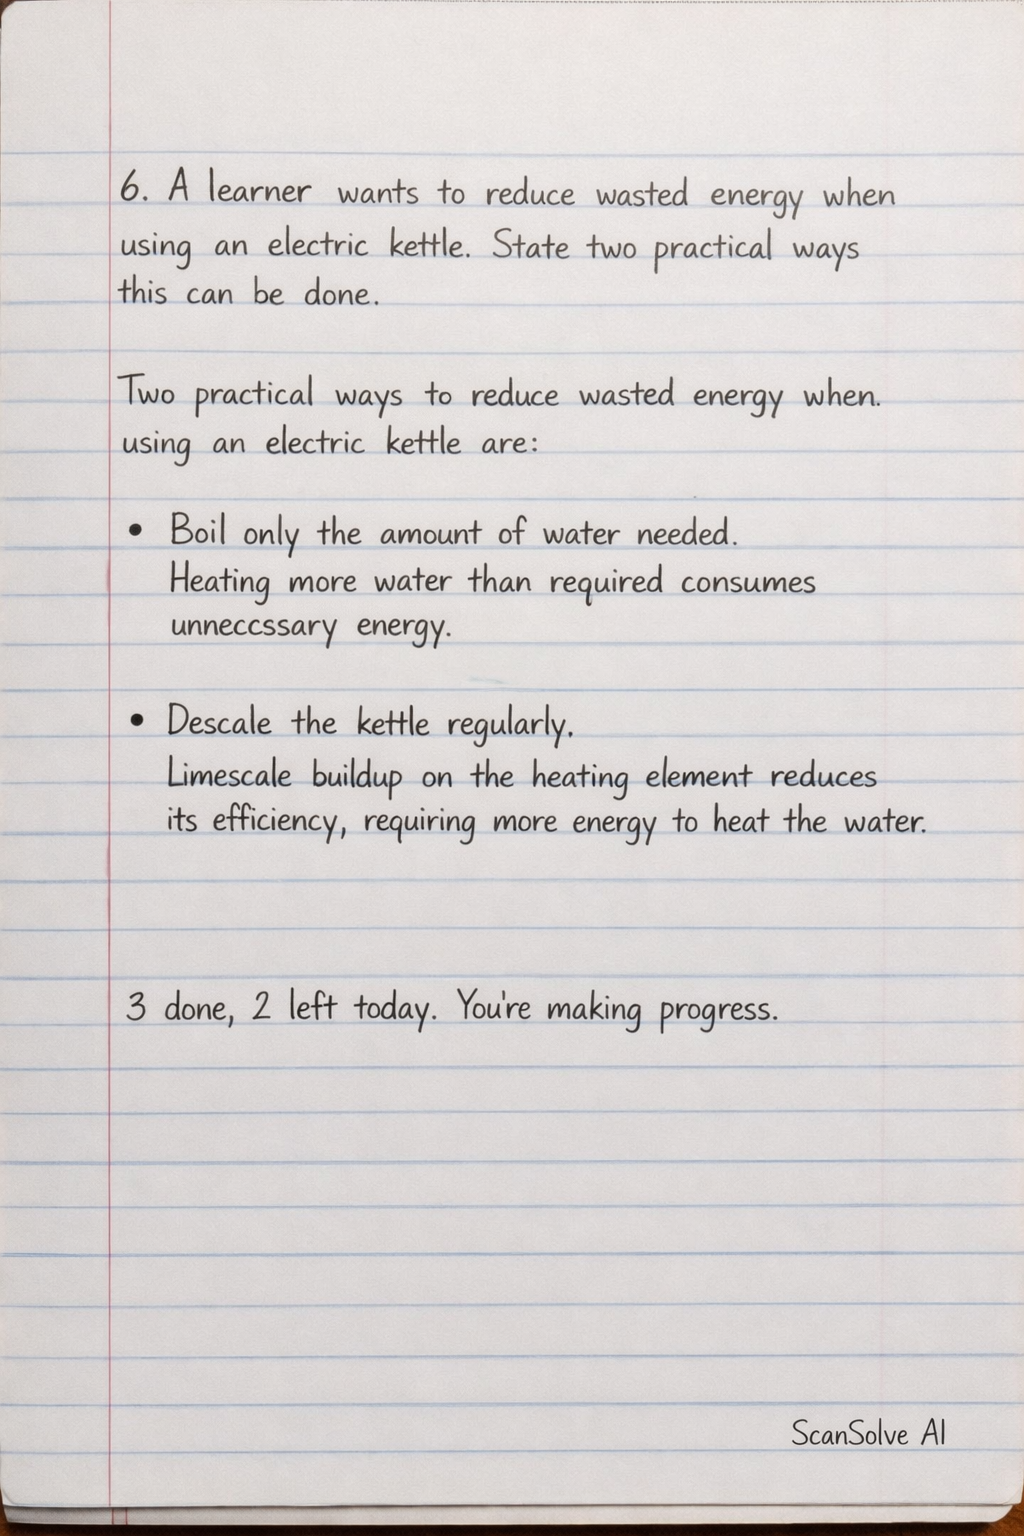 6. A learner wants to reduce wasted energy when
using an electric kettle. State two practical ways
this can be done.
Two practical ways to reduce wasted energy when.
using an electric kettle are:
• Boil only the amount of water needed.
Heating more water than required consumes
unneccssary energy.
• Descale the kettle regularly.
Limescale buildup on the heating element reduces
its efficiency, requiring more energy to heat the water.
3 done, 2 left today. You're making progress.
ScanSolve AI